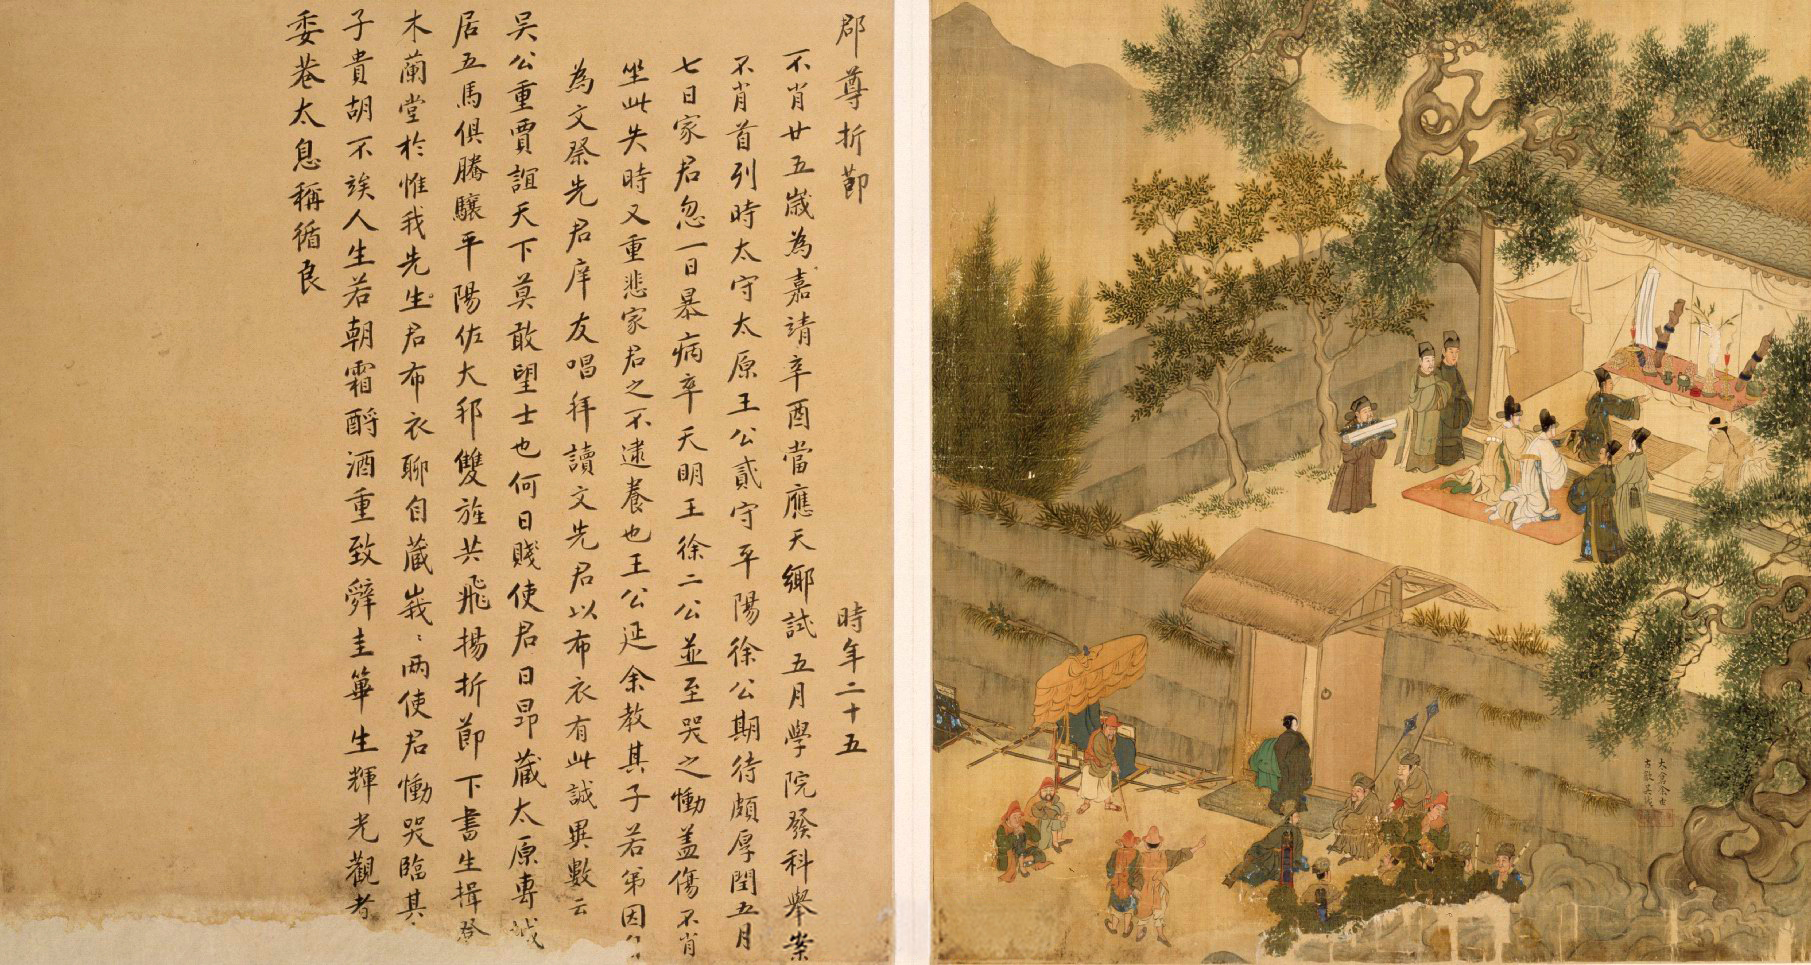 郡尊折節 時年二十五
不肖廿五歲為嘉靖辛酉當應天鄉試五月學院發科舉案
不肖首列時太守太原王公貳守平陽徐公期待頗厚閏五月
七日家君忽一日暴病卒天明王徐二公並至哭之慟蓋傷不肖
坐此失時又重悲家君之不逮養也王公延余教其子若弟因
為文祭先君庠友唱拜讀文先君以布衣有此誠異數云
吳公重賈誼天下莫敢望士也何日賤使君日昂藏太原專城
居五馬俱騰驤平陽佐大邦雙旌共飛揚折節下書生揖登
木蘭堂於惟我先生君布衣聊自藏峩〻兩使君慟哭臨其
子貴胡不俟人生若朝霜酹酒重致辭圭篳生輝光觀者
委巷太息稱循良
太倉余士
古歙吳鉞